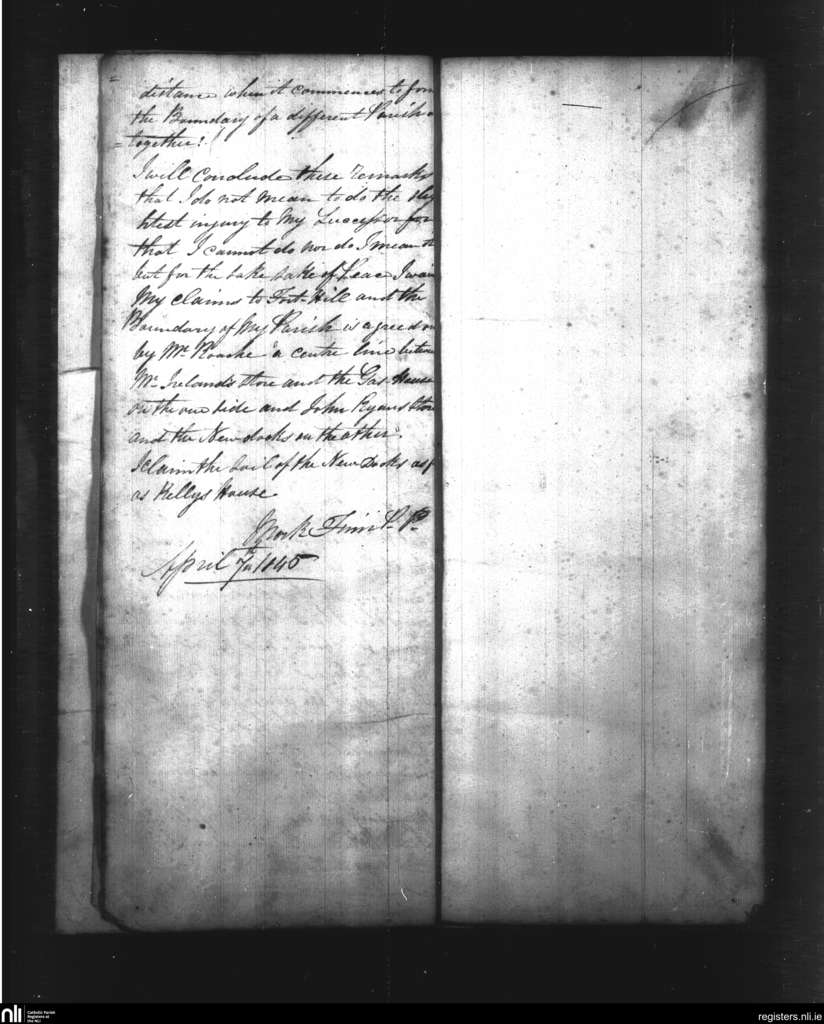 distance when it commences to form
the Boundary of a different Parish
together.
I will conclude these remarks
that I do not mean to do the sligh
htest injury to My Successor for
that I cannot do nor do I mean
but for the sake sake of Peace I
My claims to Fort Hill and the
Boundary of My Parish is agreed on
by Mr. Roache a centre line betwe
Mr. Irelands store and the Gas House
on the one side and John Ryans Store
and the New docks on the other.
I claim the soil of the New Docks as
as Kellys House
Mark Finn P. P.
April 7th 1845
nli
Catholic Parish
Registers at
the NLI
registers.nli.ie